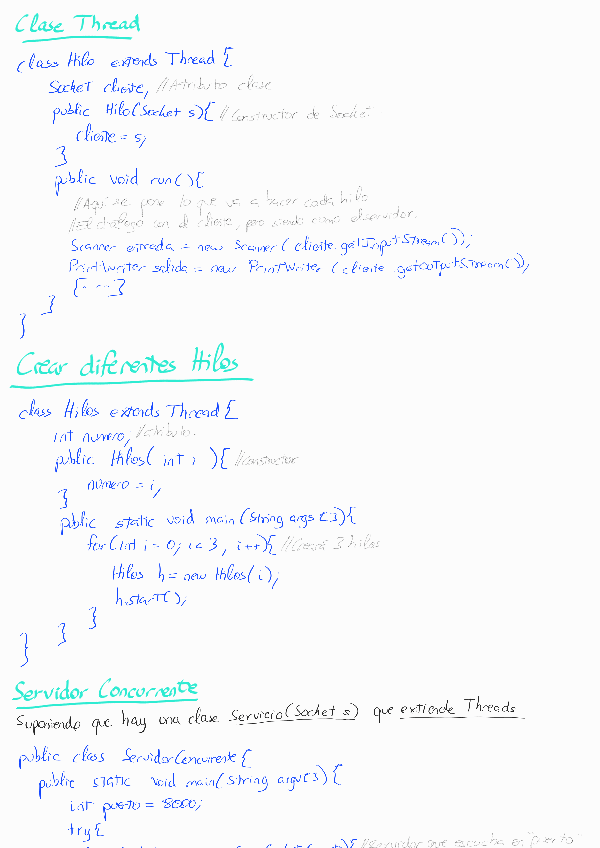 Clase Thread
class Hilo extends Thread {
Socket cliente; //Atributo clase
public Hilo(Socket s){ //Constructor de Socket
cliente = s;
}
public void run(){
//Aquí se pone lo que va a hacer cada hilo
//El diálogo con el cliente, pero siendo como observador.
Scanner entrada = new Scanner (cliente.getInputStream());
PrintWriter salida = new PrintWriter (cliente.getOutputStream());
[...]
}
}
Crear diferentes Hilos
class Hilos extends Thread {
int numero; //atributo.
public Hilos( int i ){ //constructor
numero = i;
}
public static void main (String args []){
for (int i = 0; i < 3 ; i++){ //Creará 3 hilos
Hilos h = new Hilos(i);
h.start();
}
}
}
Servidor Concurrente
Suponiendo que hay una clase Servicio(Socket s) que extiende Threads
public class ServidorConcurrente {
public static void main (String argv[]) {
int puerto = 8000;
try {
{ //Servidor que escucha en "puerto"